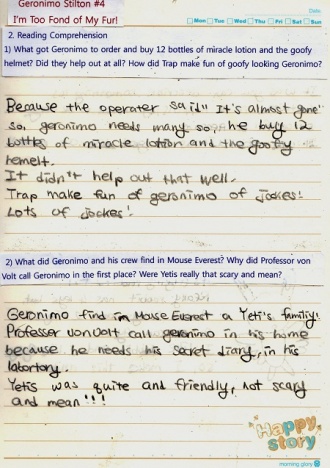 Geronimo Stilton #4
I'm Too Fond of My Fur!
Date
Mon Tue Wed Thu Fri Sat Sun
2. Reading Comprehension
1) What got Geronimo to order and buy 12 bottles of miracle lotion and the goofy
helmet? Did they help out at all? How did Trap make fun of goofy looking Geronimo?
Because the operater said" It's almost gone"
so, geronimo needs many so he buy 12
bottles of miracle lotion and the goofty
hemelt.
It didn't help out that well.
Trap make fun of geronimo of jockes!
Lots of jockes!
2) What did Geronimo and his crew find in Mouse Everest? Why did Professor von
Volt call Geronimo in the first place? Were Yetis really that scary and mean?
Geronimo find in Mouse Everest a Yeti's familiy!
Professor vonVolt call geronimo in his home
because he needs his secret diary, in his
labortory.
Yetis was quite and friendly, not scary
and mean!!!
Happy
story
morning glory